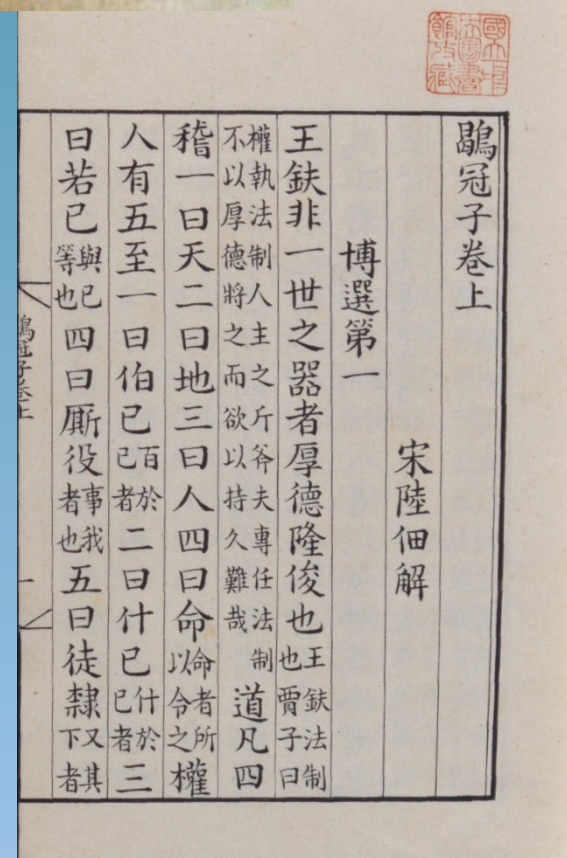 國立中央圖書館收藏
鶡冠子卷上
宋陸佃解
博選第一
王鈇非一世之器者厚德隆俊也王鈇法制也賈子曰
權執法制人主之斤斧夫專任法制不以厚德將之而欲以持久難哉道凡四
稽一曰天二曰地三曰人四曰命命者所以令之權
人有五至一曰伯已百於已者二曰什已什於已者三
曰若已與已等也四曰厮役事我者也五曰徒隸又其下者
鶡冠子卷上